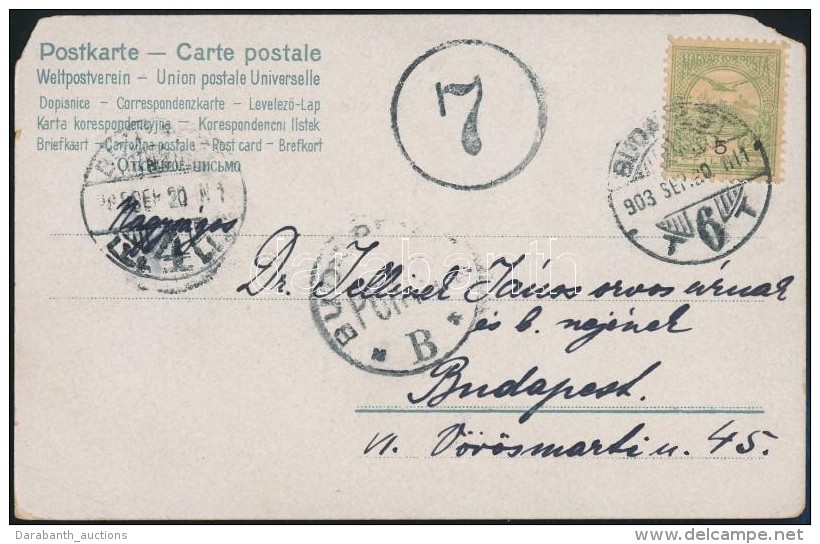 Postkarte — Carte postale
Weltpostverein – Union postale Universelle
Dopisnice – Correspondenzkarte – Levelező-Lap
Karta korespondencyjna – Korespondencni listek
Briefkaart – Cartolina postale – Post card – Brefkort
Открытое письмо
7
MAGYAR KIR. POSTA
5
903 SEP. 20
6
BUDAP
B
Dr. Jellinek János orvos úrnak
és b. nejének
Budapest.
VI. Vörösmarti u. 45.
darabanth
Darabanth_auctions
delcampe.net